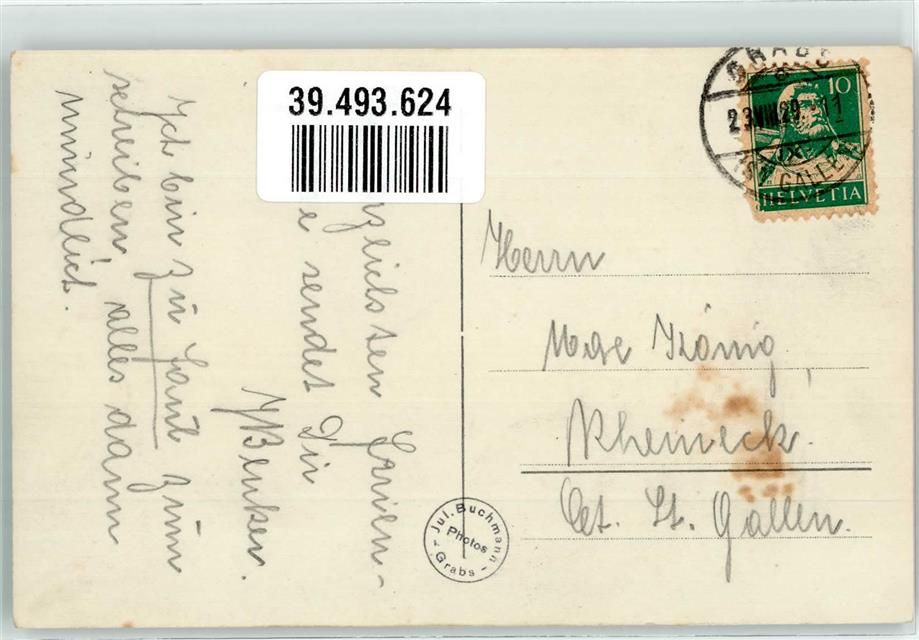 39.493.624
GRABS
23.VIII.29.-11
(ST. GALLEN)
10
HELVETIA
zlichsten Ferien-
e sendet Dir
Benker.
Ich bin zu faul zum
schreiben, alles dann
mündlich.
Herrn
König,
Rheineck.
Ct. St. Gallen.
Jul. Buchmann
Photos
- Grabs -